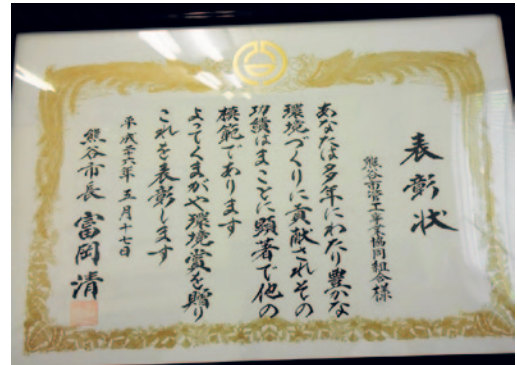 表彰状
熊谷市管工事業協同組合様
あなたは多年にわたり豊かな
環境づくりに貢献されその
功績はまことに顕著で他の
模範であります
よってくまがや環境賞を贈り
これを表彰します
平成二十六年五月十七日
熊谷市長 富岡清